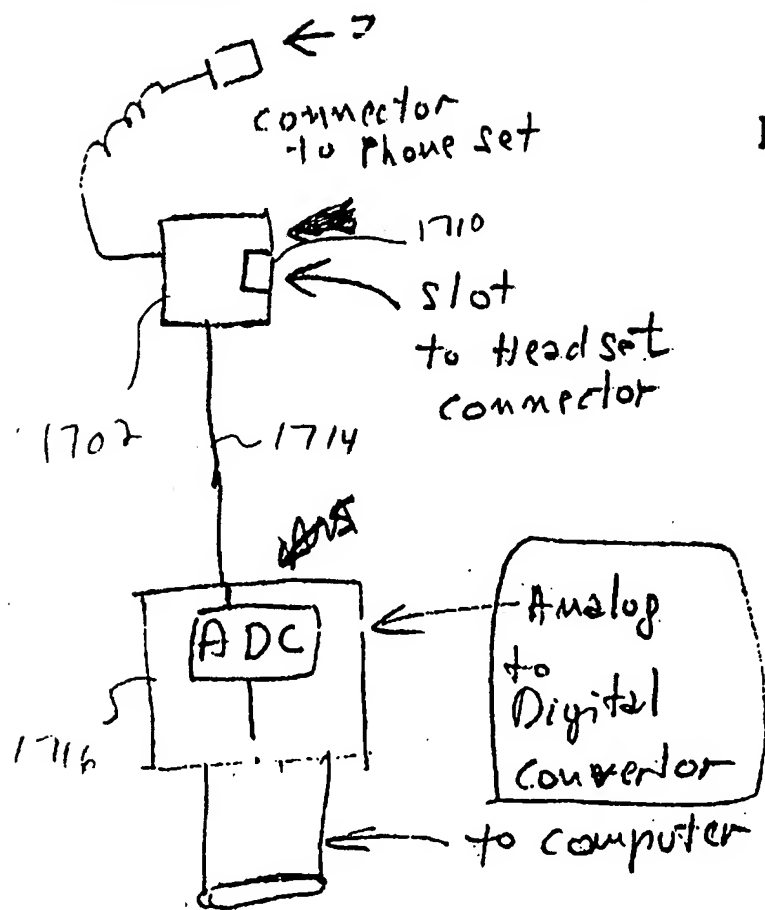 connector
to phone set
1710
slot
to Headset
connector
1702
1714
ADC
Analog
to
Digital
convertor
1716
to computer